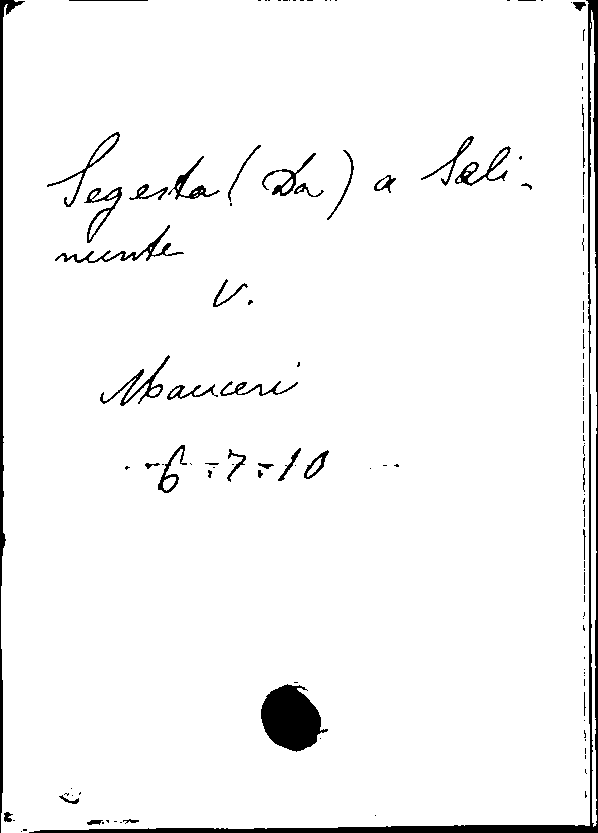 Segesta (Da) a Seli-
nunte
V.
Mauceri
6-7-10